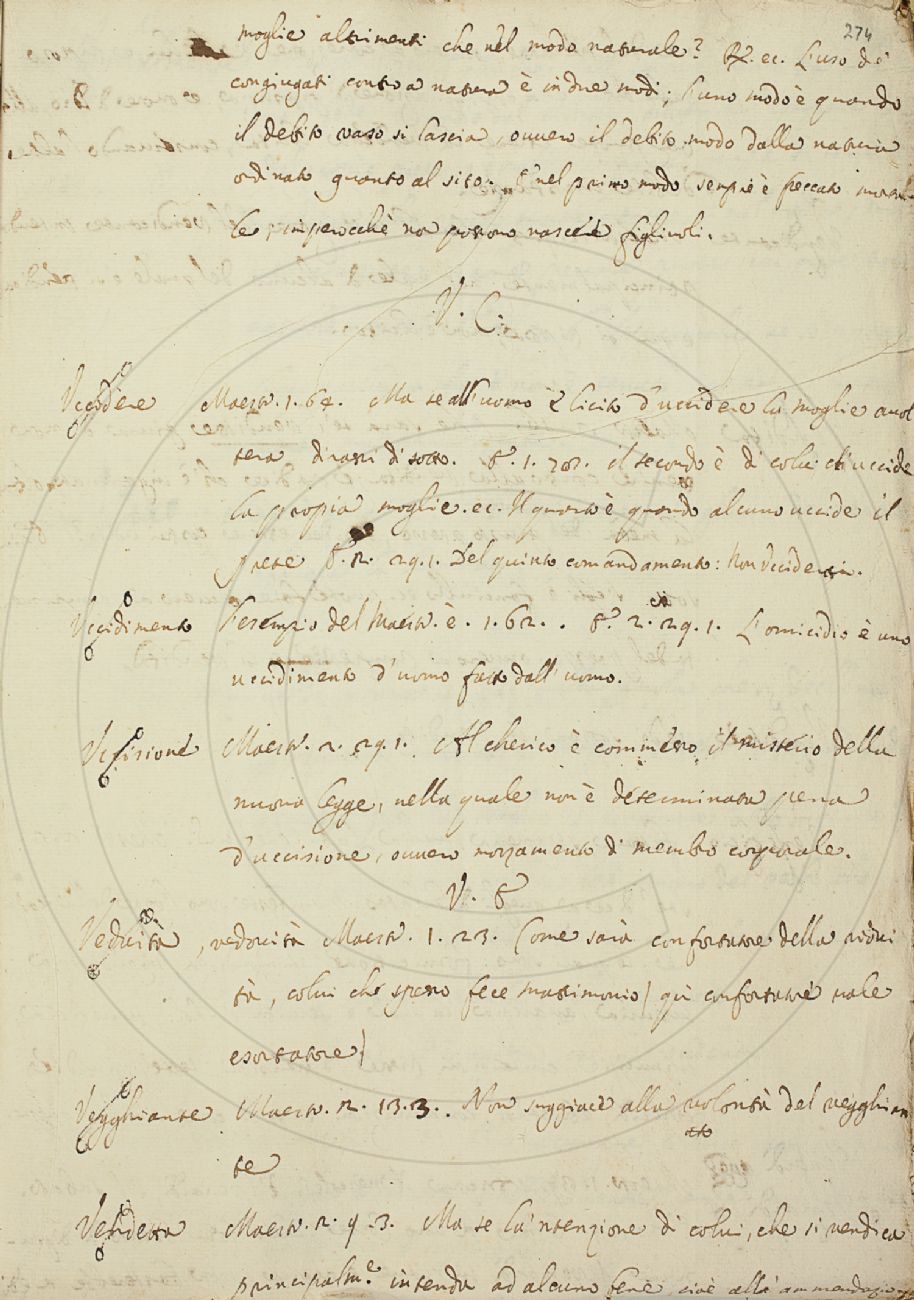 274
moglie altrimenti che nel modo naturale? R. ec. L'uso de'
congiugati contra natura è in due modi; l'uno modo è quando
il debito vaso si lascia, ovvero il debito modo dalla natura
ordinato quanto al sito. E nel primo modo sempre è peccato morta
le, imperocchè non possono nascere figliuoli.
V. C.
Uccidere Maestr. 1. 64. Ma se all'uomo è licito d'uccidere la moglie avol
tera dirassi di sotto. E. 1. il secondo è di colui ch'uccide
la propia moglie. ec. Il quarto è quando alcuno uccide il
prete E. 2. 29. 1. Del quinto comandamento: Non Uccidere
Uccidimento L'esempio del Maestr. è. 1. 62. . E. 2. 29. 1. L'omicidio è uno
uccidimento d'uomo fatto dall'uomo.
Uccisione Maestr. 2. 29. 1. Al cherico è commesso il misterio della
nuova legge, nella quale non è determinata pena
d'uccisione, ovvero mozzamento di membro corporale.
V. E
Veduità, vedovità Maestr. 1. 23. Come sarà confortatore della vidui
tà, colui che spesso fece matrimonio/ quì confortatore vale
esortatore/
Vegghiante Maestr. 2. 13. 3. . Non suggiace alla volontà del vegghian
te
Vendetta Maestr. 2. 9. 3. Ma se la 'ntenzione di colui, che si vendica
principalm.e intenda ad alcuno bene cioè alla ammendazione